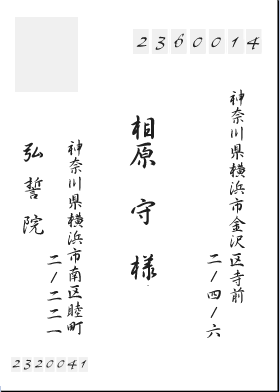 2360014
神奈川県横浜市金沢区寺前
二/四/六
相原 守 様
神奈川県横浜市南区睦町
二/二二一
弘誓院
2320041